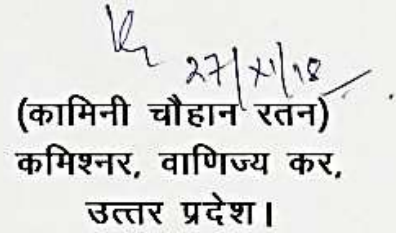 27/XI/18
(कामिनी चौहान रतन)
कमिश्नर, वाणिज्य कर,
उत्तर प्रदेश।